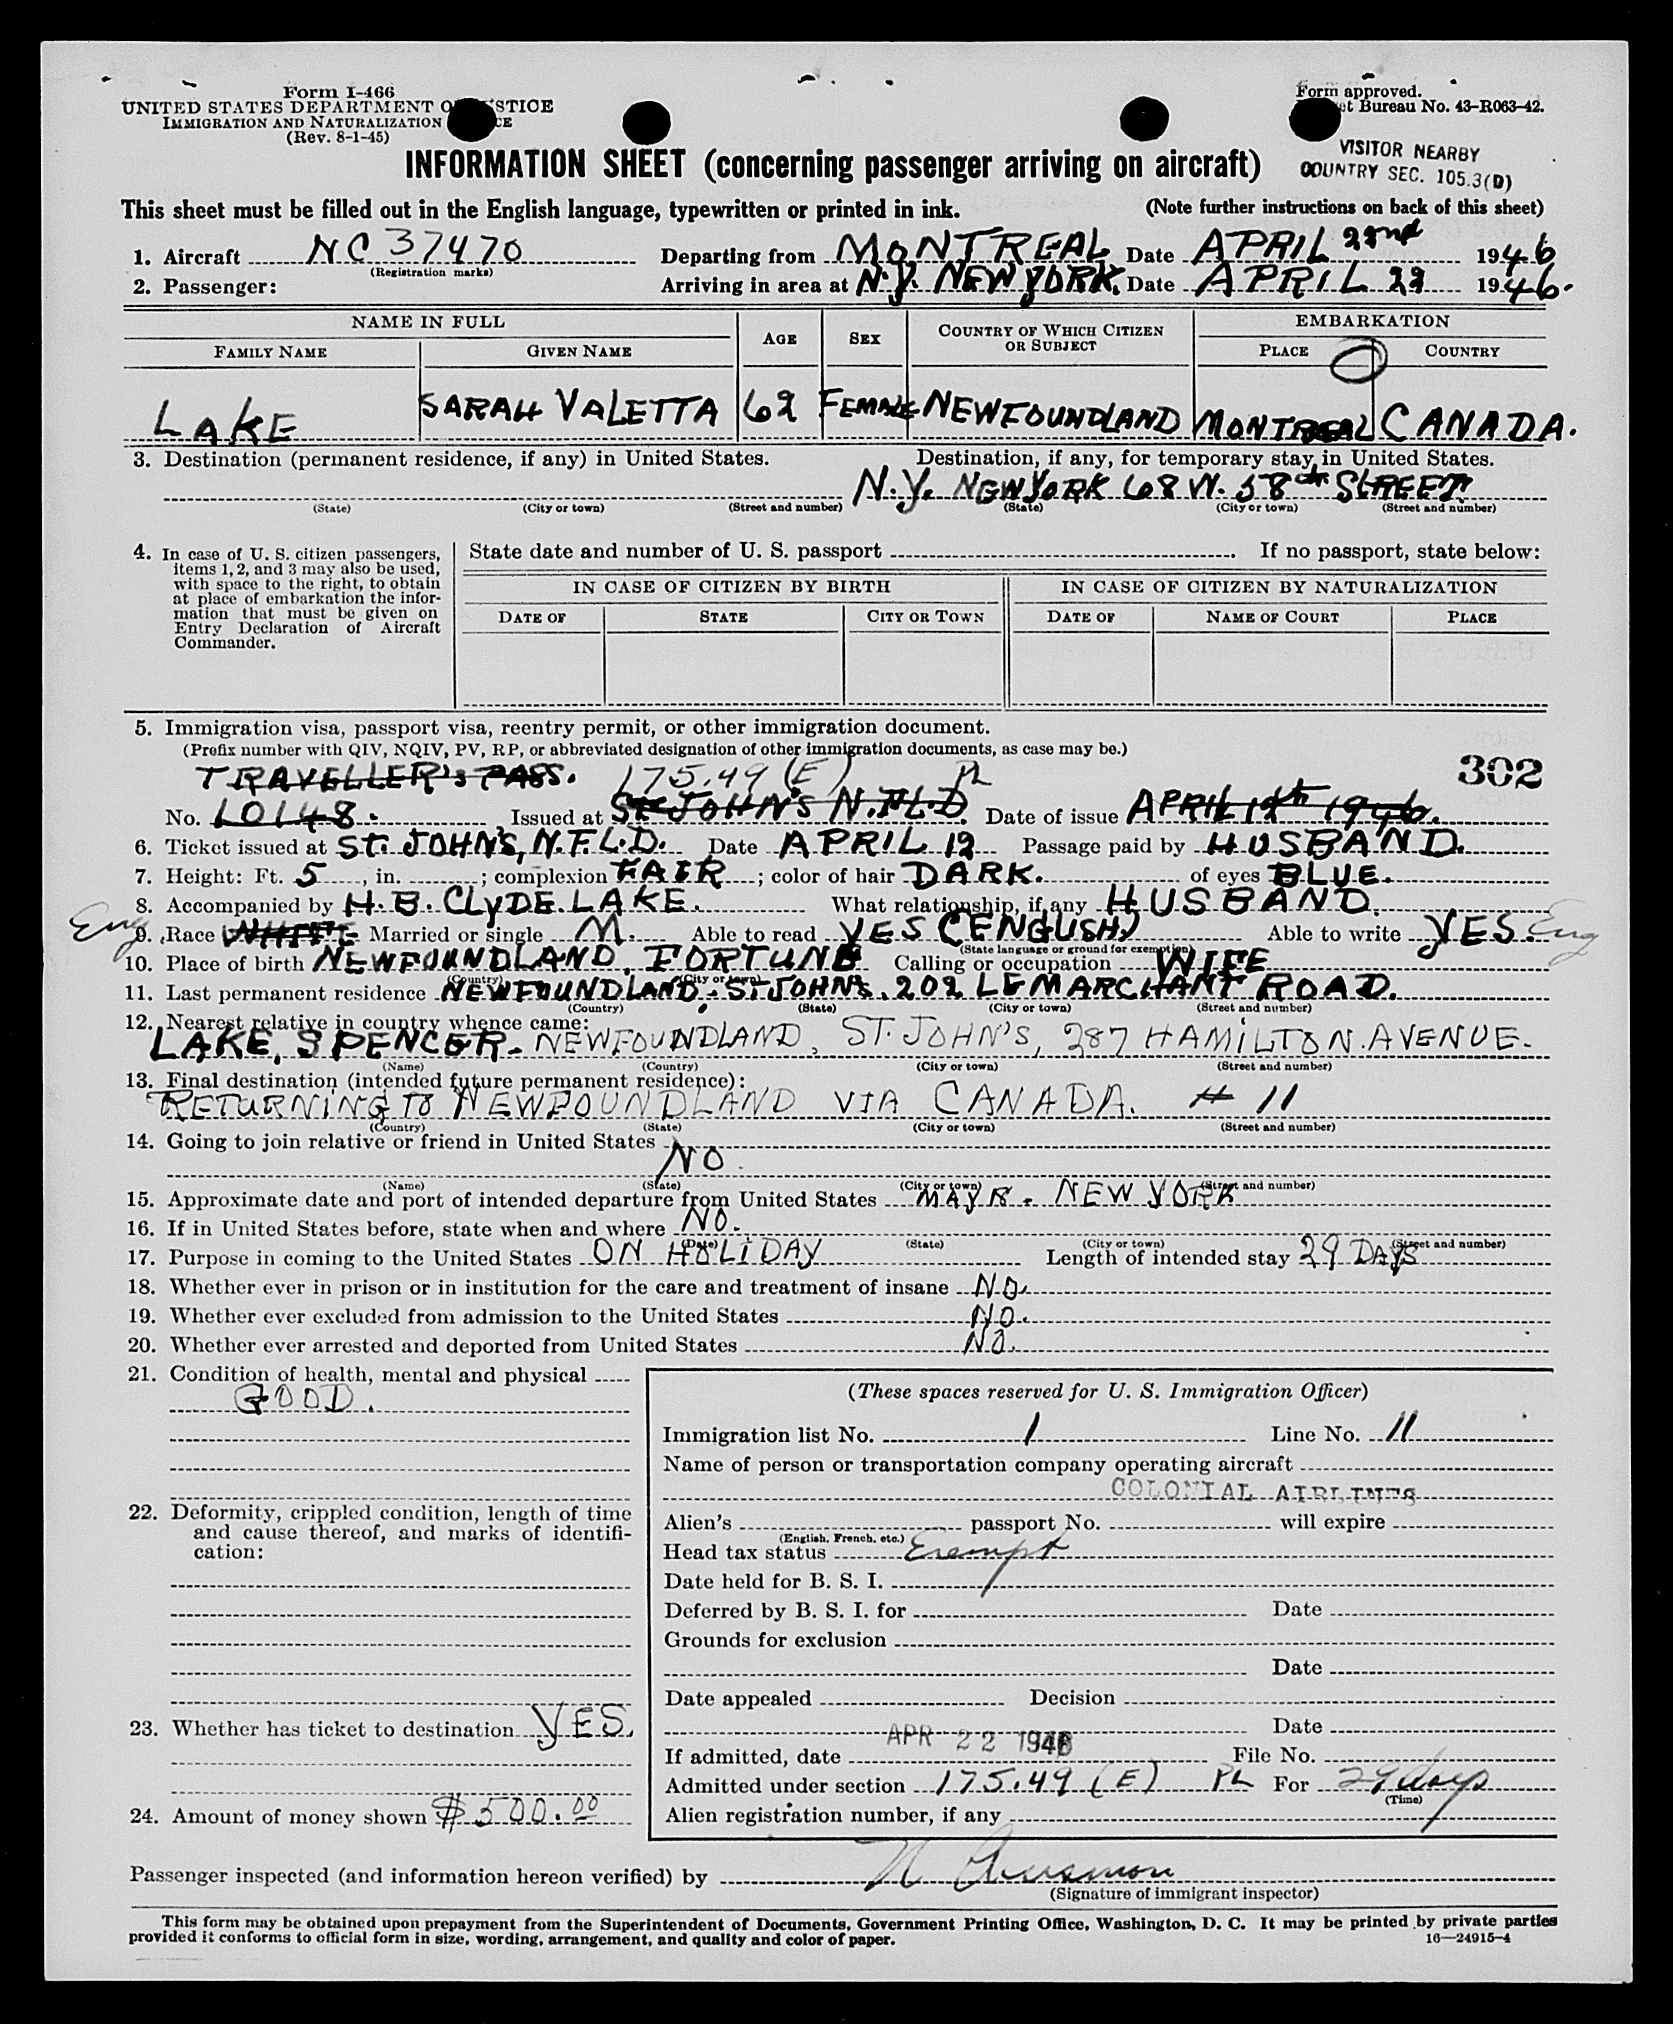 Form I-466
UNITED STATES DEPARTMENT O STICE
IMMIGRATION AND NATURALIZATION CE
(Rev. 8-1-45)
Form approved.
et Bureau No. 43-R063-42.
VISITOR NEARBY
COUNTRY SEC. 105.3(D)
INFORMATION SHEET (concerning passenger arriving on aircraft)
This sheet must be filled out in the English language, typewritten or printed in ink. (Note further instructions on back of this sheet)
1. Aircraft NC 37470 Departing from MONTREAL Date APRIL 22nd 1946
(Registration marks)
2. Passenger: Arriving in area at N.Y. NEW YORK. Date APRIL 22 1946.
NAME IN FULL AGE SEX COUNTRY OF WHICH CITIZEN OR SUBJECT EMBARKATION
FAMILY NAME GIVEN NAME PLACE COUNTRY
LAKE SARAH VALETTA 62 FEMALE NEWFOUNDLAND MONTREAL CANADA.
3. Destination (permanent residence, if any) in United States. Destination, if any, for temporary stay in United States.
N.Y. NEW YORK 68 W. 58th STREET.
(State) (City or town) (Street and number) (State) (City or town) (Street and number)
4. In case of U. S. citizen passengers, items 1, 2, and 3 may also be used, with space to the right, to obtain at place of embarkation the information that must be given on Entry Declaration of Aircraft Commander.
State date and number of U. S. passport . If no passport, state below:
IN CASE OF CITIZEN BY BIRTH IN CASE OF CITIZEN BY NATURALIZATION
DATE OF STATE CITY OR TOWN DATE OF NAME OF COURT PLACE
5. Immigration visa, passport visa, reentry permit, or other immigration document.
(Prefix number with QIV, NQIV, PV, RP, or abbreviated designation of other immigration documents, as case may be.)
302
TRAVELLER'S PASS. 175.49 (E) PL
No. 10148. Issued at ST. JOHN'S N.FL.D. Date of issue APRIL 12th 1946.
6. Ticket issued at ST. JOHN'S, N.F.L.D. Date APRIL 12 Passage paid by HUSBAND.
7. Height: Ft. 5, in. ; complexion FAIR; color of hair DARK. of eyes BLUE.
8. Accompanied by H. B. CLYDE LAKE. What relationship, if any HUSBAND.
Eng 9. Race WHITE Married or single M. Able to read YES (ENGLISH) Able to write YES. Eng
(State language or ground for exemption)
10. Place of birth NEWFOUNDLAND, FORTUNE Calling or occupation WIFE
(Country) (City or town)
11. Last permanent residence NEWFOUNDLAND, ST JOHN'S, 202 LEMARCHANT ROAD.
(Country) (State) (City or town) (Street and number)
12. Nearest relative in country whence came:
LAKE, SPENCER - NEWFOUNDLAND, ST. JOHN'S, 287 HAMILTON AVENUE.
(Name) (Country) (City or town) (Street and number)
13. Final destination (intended future permanent residence):
RETURNING TO NEWFOUNDLAND VIA CANADA. # 11
(Country) (State) (City or town) (Street and number)
14. Going to join relative or friend in United States
NO.
(Name) (State) (City or town) (Street and number)
15. Approximate date and port of intended departure from United States MAY - NEW YORK
16. If in United States before, state when and where NO.
(Date) (State) (City or town) (Street and number)
17. Purpose in coming to the United States ON HOLIDAY Length of intended stay 29 DAYS
18. Whether ever in prison or in institution for the care and treatment of insane NO.
19. Whether ever excluded from admission to the United States NO.
20. Whether ever arrested and deported from United States NO.
21. Condition of health, mental and physical
GOOD.
22. Deformity, crippled condition, length of time and cause thereof, and marks of identification:
23. Whether has ticket to destination YES.
24. Amount of money shown $500.00
(These spaces reserved for U. S. Immigration Officer)
Immigration list No. 1 Line No. 11
Name of person or transportation company operating aircraft
COLONIAL AIRLINES
Alien's passport No. will expire
(English, French, etc.)
Head tax status Exempt
Date held for B. S. I.
Deferred by B. S. I. for Date
Grounds for exclusion
Date
Date appealed Decision
Date
If admitted, date APR 22 1946 File No.
Admitted under section 175.49 (E) PL For 29 days
(Time)
Alien registration number, if any
Passenger inspected (and information hereon verified) by
(Signature of immigrant inspector)
This form may be obtained upon prepayment from the Superintendent of Documents, Government Printing Office, Washington, D. C. It may be printed by private parties
provided it conforms to official form in size, wording, arrangement, and quality and color of paper. 16—24915-4